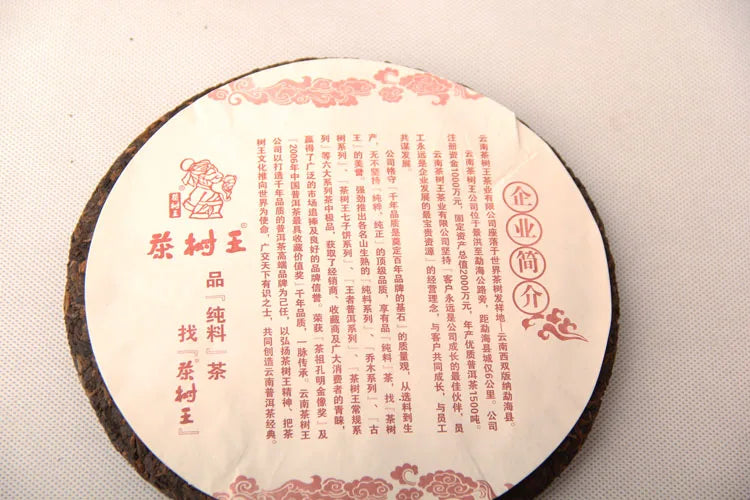 企业简介
云南茶树王茶业有限公司座落于世界茶树发祥地—云南西双版纳勐海县。公司
云南茶树王公司位于景洪至勐海公路旁，距勐海县城仅6公里。公司
注册资金1000万元，固定资产总值2000万元，年产优质普洱茶1500吨。
云南茶树王茶业有限公司坚持“客户永远是公司成长的最佳伙伴，员
工永远是企业发展的最宝贵资源”的经营理念，与客户共同成长，与员工
共谋发展。
公司恪守“千年品质是奠定百年品牌的基石”的质量观，从选料到生
产，无不坚持『纯粹、纯正』的顶级品质，享有品『纯料』茶，找『茶树
王』的美誉。强劲推出各名山生熟的「纯料系列」、「乔木系列」、「古
树系列」、「茶树王七子饼系列」、「王者普洱系列」、「茶树王常规系
列」等六大系列茶中极品，获取了经销商、收藏商及广大消费者的青睐，
赢得了广泛的市场追捧及良好的品牌信誉。荣获「茶祖孔明金像奖」及
「2006年中国普洱茶最具收藏价值奖」千年品质，一脉传承。云南茶树王
公司以打造千年品质的普洱茶高端品牌为己任，以弘扬茶树王精神，把茶
树王文化推向世界为使命，广交天下有识之士，共同创造云南普洱茶经典。
茶树王
茶树王®
品『纯料』茶
找『茶树王』